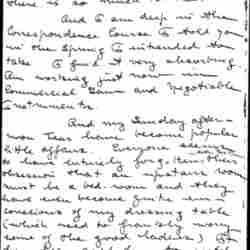 there is so much to
And I am deep in the
Correspondence Course I told you
in the Spring I intended to
take I find it very absorbing.
Am working just now in
Commercial Law and Negotiable
Instruments.
And my Sunday after-
noon Teas have become popular
little affairs. Everyone seems
to have entirely forgotten their
obsession that an upstairs room
must be a bed-room and they
have even become quite un-
conscious of my dressing table
(which used to frankly worry
some of the good ladies) I